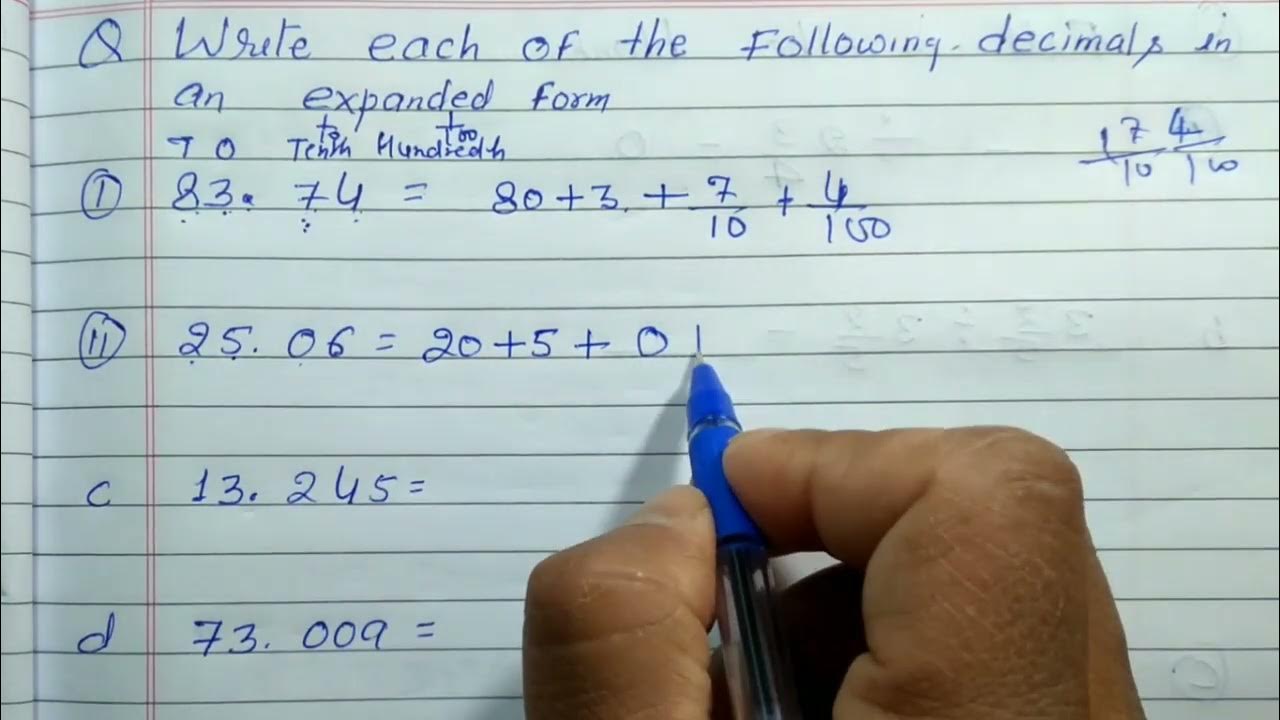 Q Write each of the Following decimals in
an expanded form
T O Tenth 1/10 Hundredth 1/100
I 83.74 = 80 + 3 + 7/10 + 4/100
17/10 4/100
II 25.06 = 20 + 5 + 0
c 13.245 =
d 73.009 =